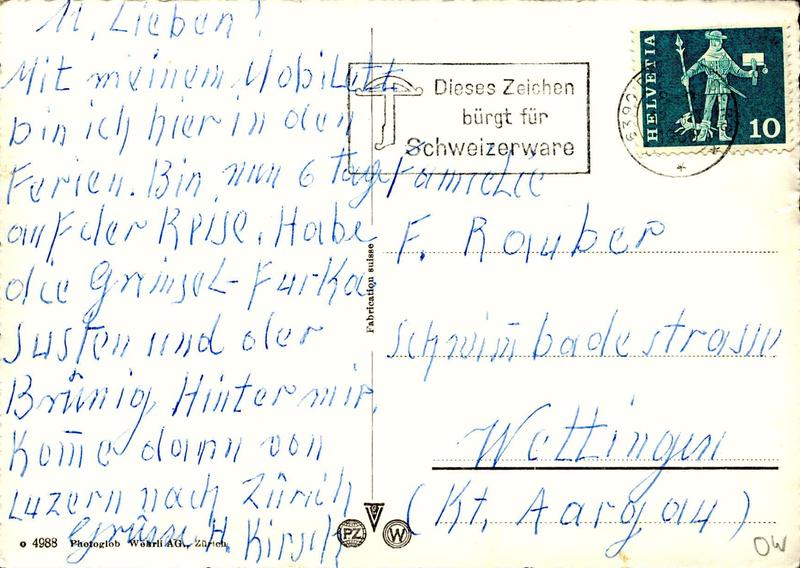 M. Lieben!
Mit meinem Mobilett
bin ich hier in den
Ferien. Bin nun 6 Tage
auf der Reise. Habe
die Grimsel-Furka
Susten und der
Brünig Hinter mir.
Kom̅e dann von
Luzern nach Zürich
Grüsse H. Kirsch
o 4988 Photoglob Wehrli AG., Zürich
Fabrication suisse
PZ
W
Dieses Zeichen
bürgt für
Schweizerware
HELVETIA
10
6390
Familie
F. Rauber
Schwim̅badestrasse
Wettingen
(Kt. Aargau)
OW